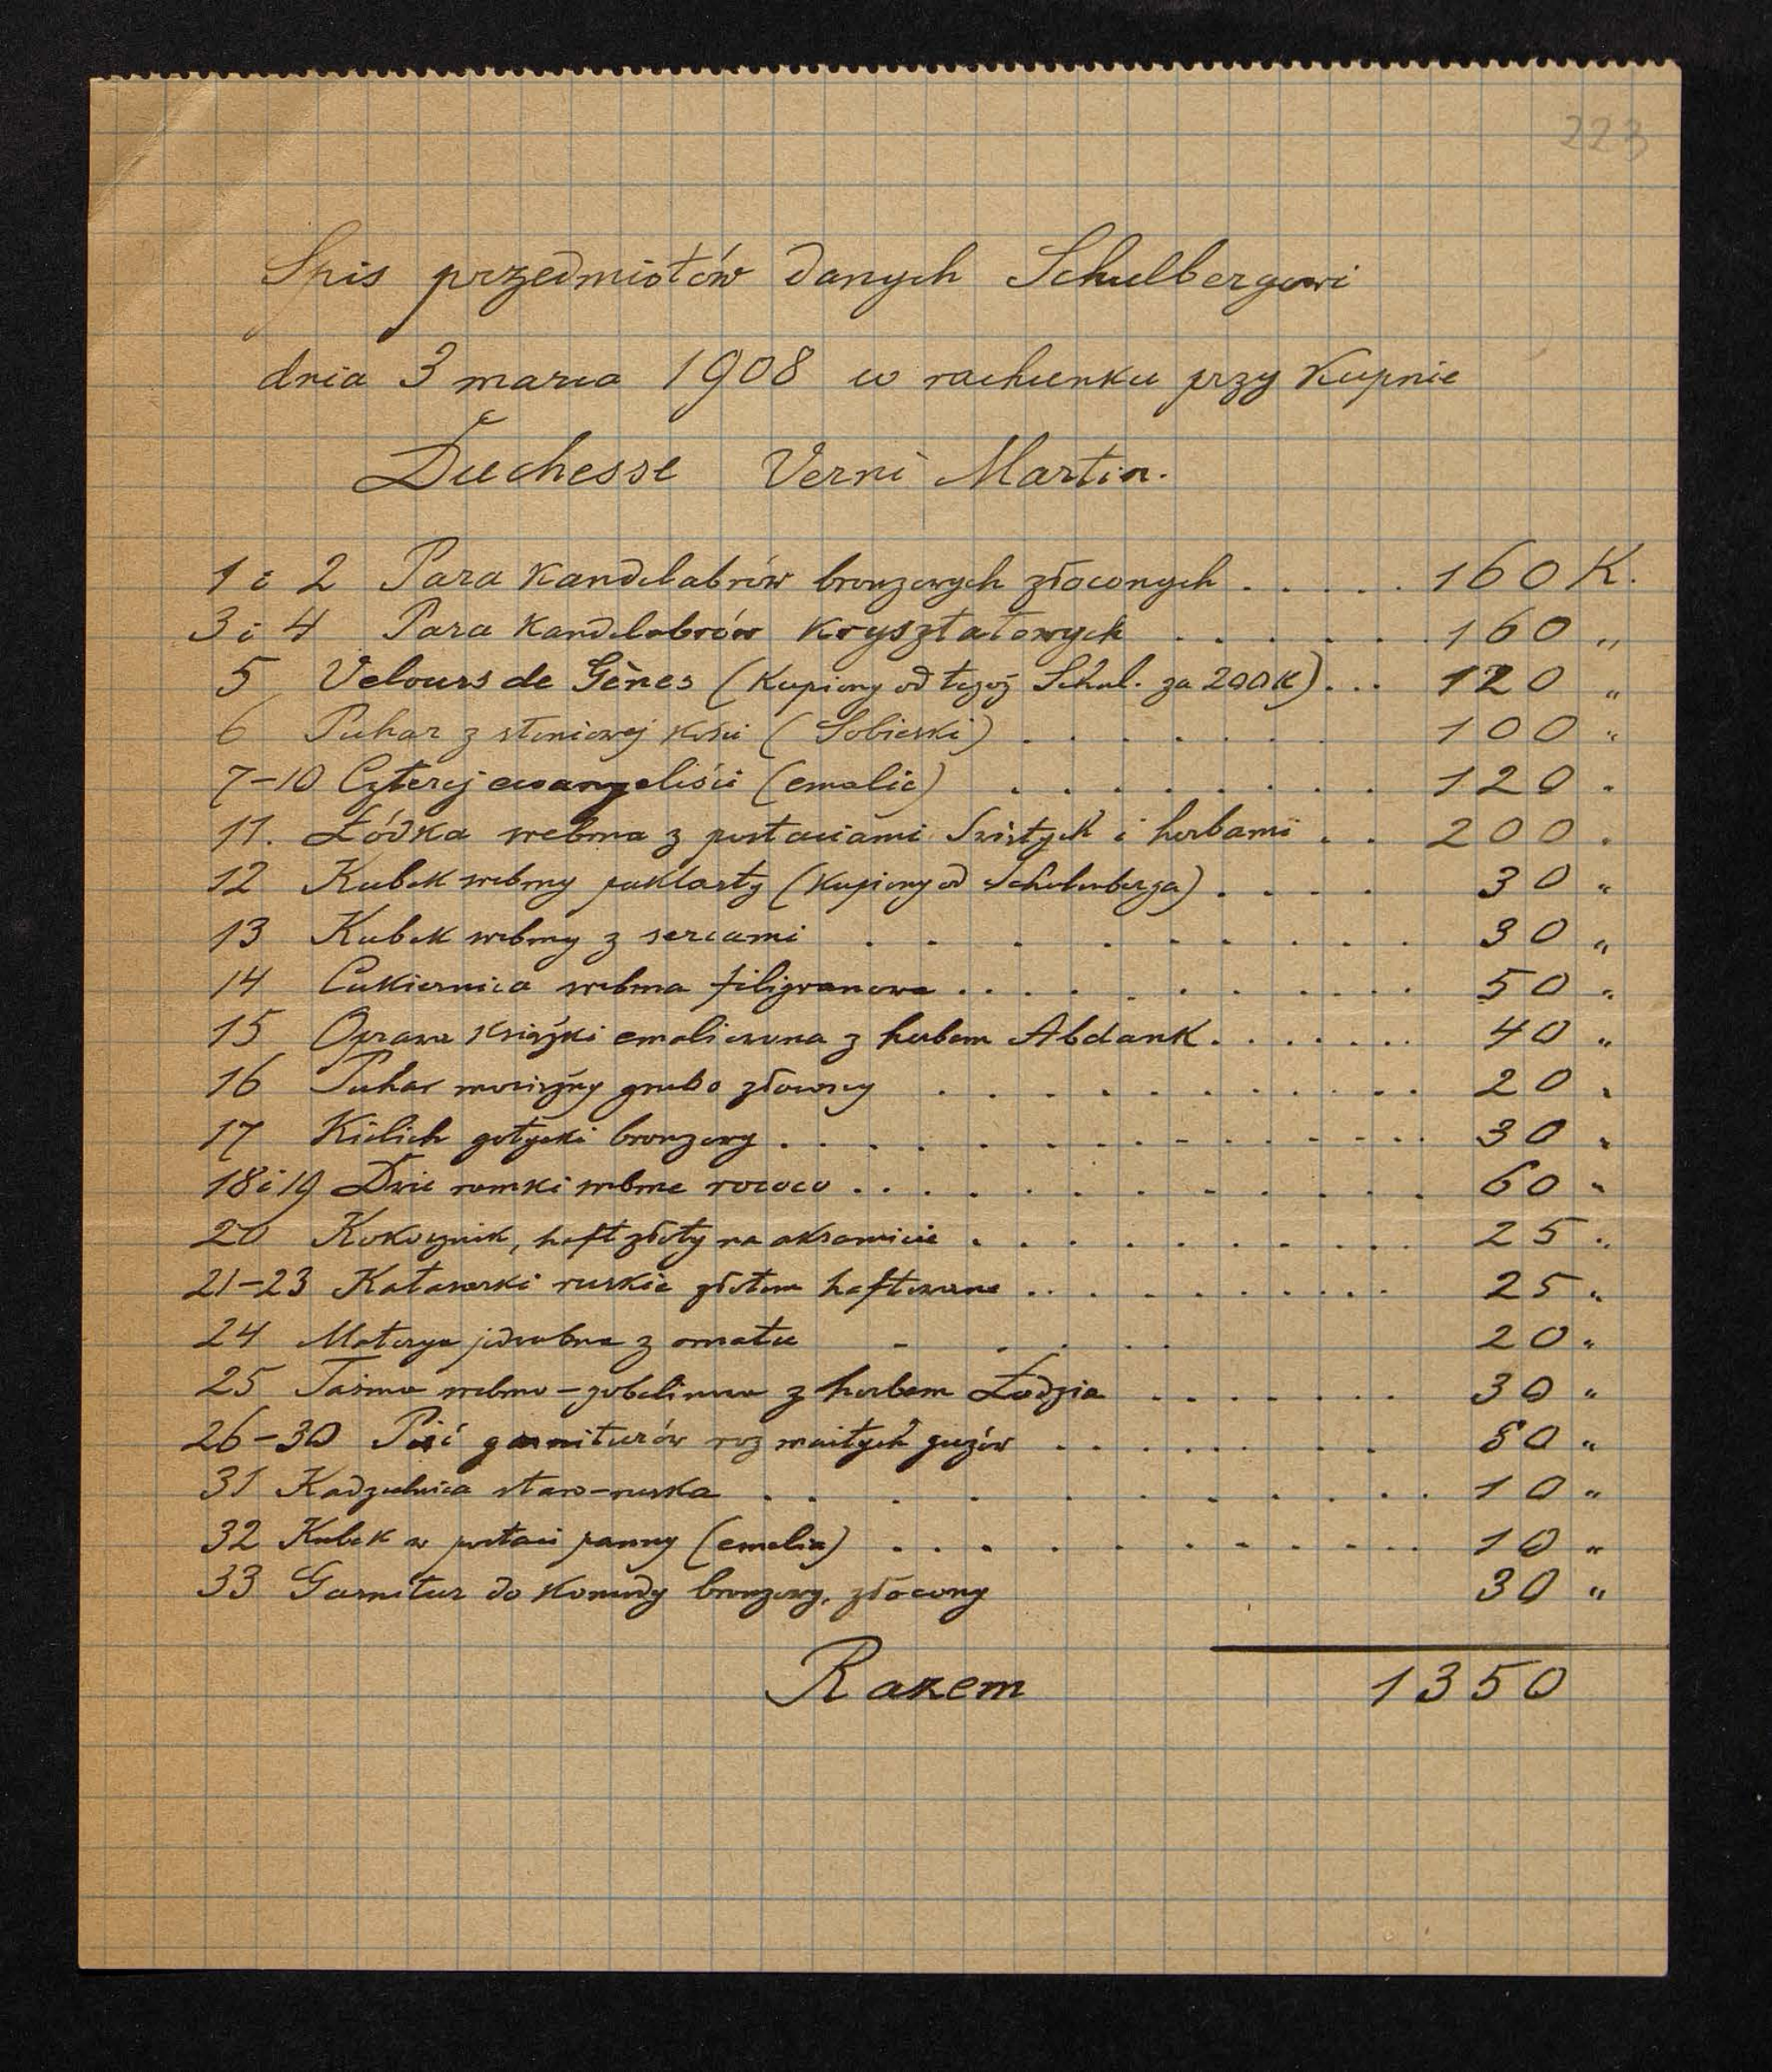 223
Spis przedmiotów danych Schulbergowi
dnia 3 marca 1908 w rachunku przy Kupnie
Duchesse Verni Martin.
1 i 2 Para Kandelabrów bronzowych złoconych . . . . . 160 K.
3 i 4 Para Kandelabrów Kryształowych . . . . . . 160 "
5 Velours de Gènes (Kupiony od tegoż Schul. za 200K) . . . 120 "
6 Puhar z słoniowej kości (Sobieski) . . . . . . . 100 "
7-10 Czterej ewangeliści (emalie) . . . . . . . . 120 "
11. Łódka srebrna z postaciami Świętych i herbami . . 200 "
12 Kubek srebrny puklasty (Kupiony od Schulenberga) . . . . 30 "
13 Kubek srebrny z sercami . . . . . . . . . . 30 "
14 Cukiernica srebrna filigranowa . . . . . . . . . . 50 "
15 Oprawa Książki emaliowana z herbem Abdank . . . . . . . 40 "
16 Puhar mosiężny grubo złocony . . . . . . . . . . 20 "
17 Kielich gotycki bronzowy . . . . . . . . . . . . . . 30 "
18 i 19 Dwie ramki srebrne rococo . . . . . . . . . . . 60 "
20 Kokosznik, haft złoty na aksamicie . . . . . . . . . . 25 "
21-23 Kataraski ruskie złotem haftowane . . . . . . . . . 25 "
24 Materya jedwabna z ornatu . . . . . 20 "
25 Taśma srebrna-gobelinowa z herbem Łodzia . . . . . . . 30 "
26-30 Pięć garniturów rozmaitych guzów . . . . . . . . 80 "
31 Kadzielnica staro-ruska . . . . . . . . . . . . . 10 "
32 Kubek w postaci panny (emalia) . . . . . . . . . . . . 10 "
33 Garnitur do Komody bronzowy, złocony 30 "
Razem 1350